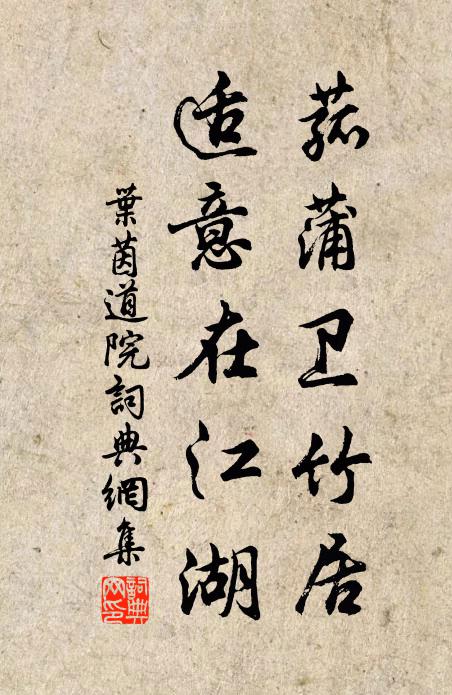 菰蒲卫竹居
适意在江湖
葉茵道院詞典網集
詞典網印